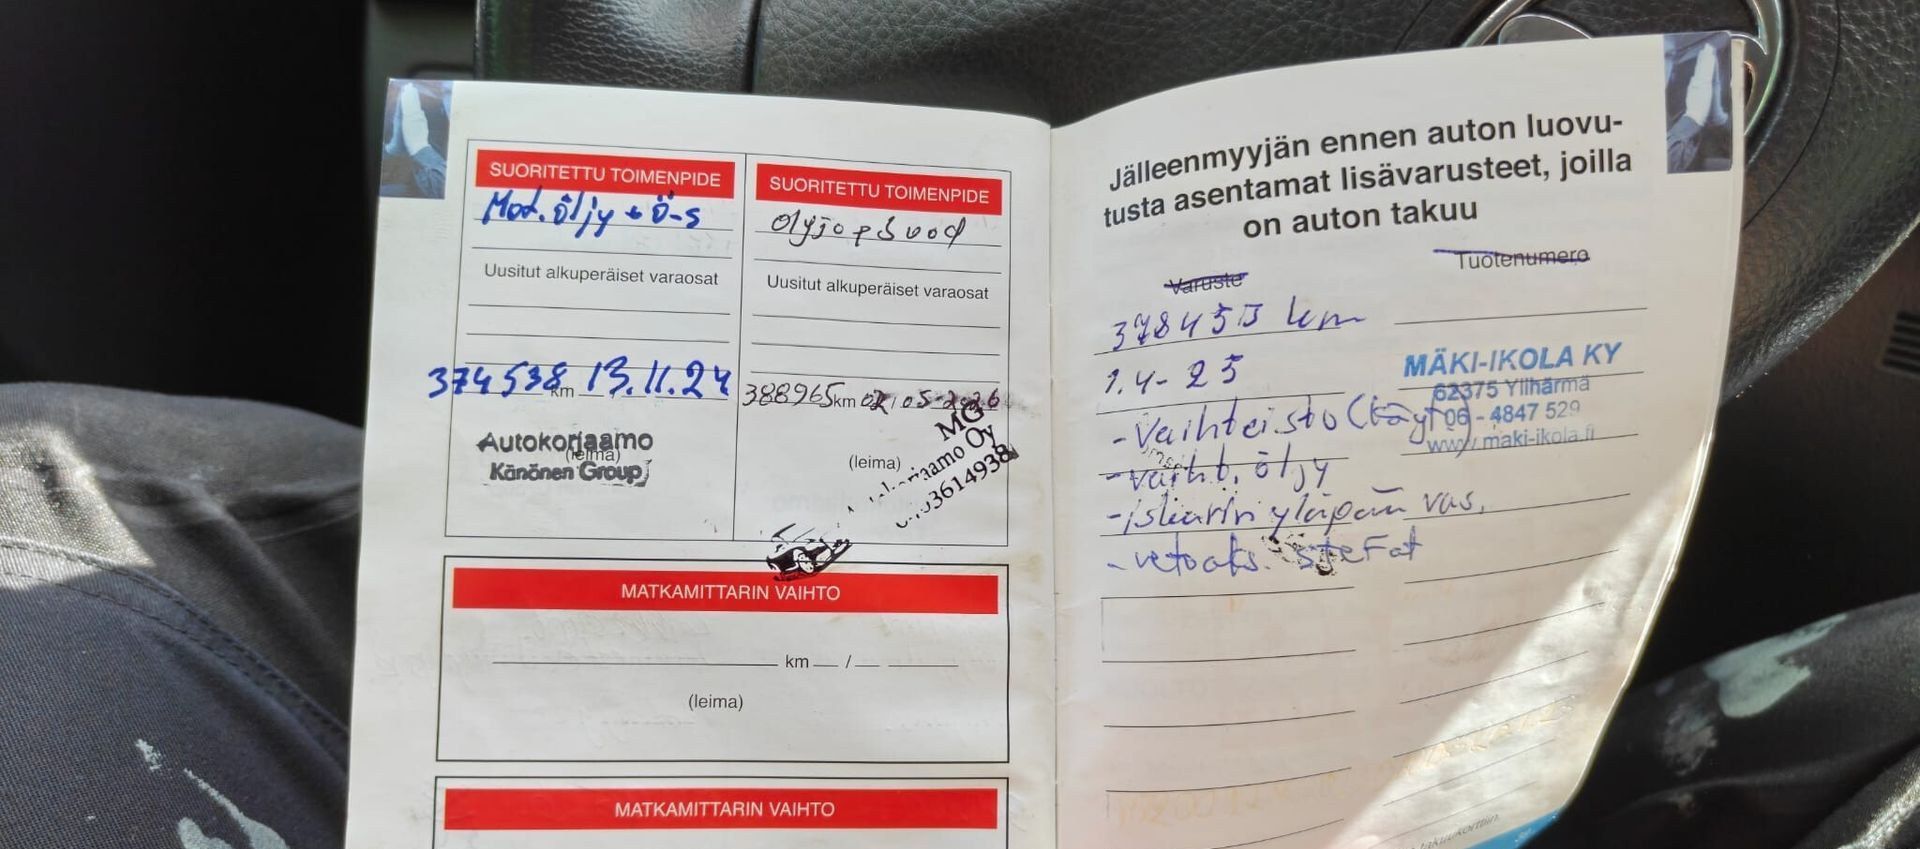 SUORITETTU TOIMENPIDE
Mot. öljy + ö-s
Uusitut alkuperäiset varaosat
374538 km 13.11.24
Autokorjaamo
(leima)
Känönen Group
SUORITETTU TOIMENPIDE
Uusitut alkuperäiset varaosat
388965 km 02/05-2026
MG
(leima)
MATKAMITTARIN VAIHTO
km /
(leima)
MATKAMITTARIN VAIHTO
Jälleenmyyjän ennen auton luovu-
tusta asentamat lisävarusteet, joilla
on auton takuu
Varuste Tuotenumero
378455 km
1.4-25
MÄKI-IKOLA KY
62375 Ylihärmä
06 - 4847 529
www.maki-ikola.fi
- Vaihteisto (käyt)
- vaiht. öljy
- iskarin yläpään vas.
- vetoaks. stefat